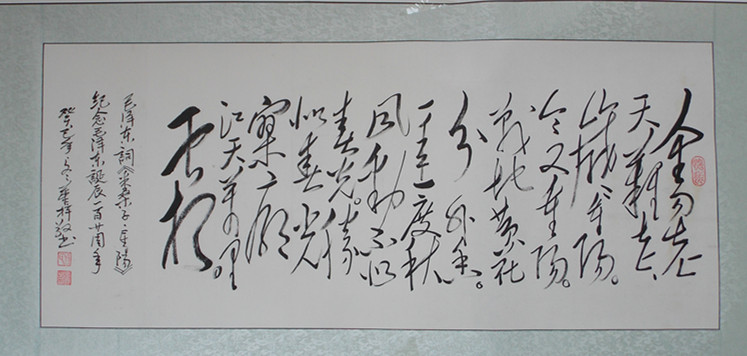 人生易老
天難老、
歲〻重陽。
今又重陽。
戰地黄花
分外香。
一年一度秋
風勁不似
春光。勝
似春光
寥廓
江天萬里
霜
毛泽东词《采桑子·重陽》
纪念毛泽东誕辰一百廿周年
癸巳年冬